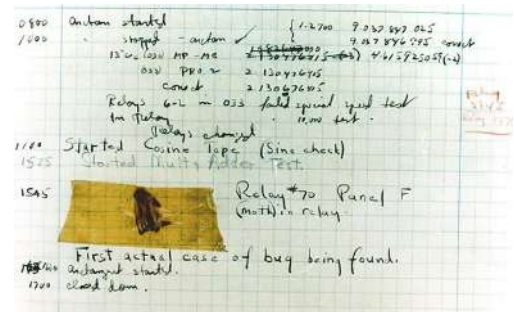 0800 antan started
1000 " stopped - antan ✓ { 1.2700 9.037 847 025
9.037 846 995 correct
13"uc (032) MP - MC 2.130476415 (-3) 4.615925059 (-2)
033 PRO 2 2.130476415
correct 2.130676415
Relays 6-2 in 033 failed special speed test
In Relay " 10,000 test .
Relays changed
1100 Started Cosine Tape (Sine check)
1525 Started Mult+ Adder Test.
1545 Relay #70 Panel F
(moth) in relay.
First actual case of bug being found.
antangent started.
1700 closed down.
Relay